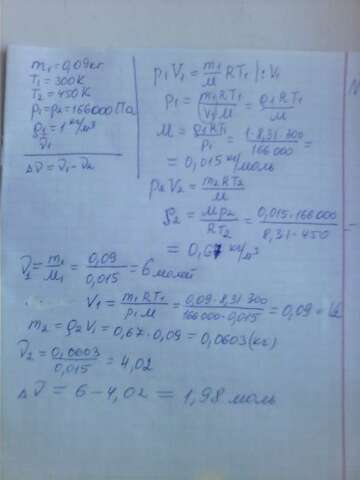 m₁ = 0,09 кг
T₁ = 300К
T₂ = 450 К
p₁ = p₂ = 166000 Па
ρ₁ = 1 кг/м³
ν₁
Δν = ν₁ - ν₂
p₁V₁ = m₁/M RT₁ |: V₁
p₁ = m₁RT₁/V₁M = ρ₁RT₁/M
M = ρ₁RT₁/p₁ = 1·8,31·300/166000 =
= 0,015 кг/моль
p₂V₂ = m₂RT₂/M
ρ₂ = Mp₂/RT₂ = 0,015·166000/8,31·450
= 0,67 кг/м³
ν₁ = m₁/M₁ = 0,09/0,015 = 6 молей
V₁ = m₁RT₁/p₁M = 0,09·8,31·300/166000·0,015 = 0,09
m₂ = ρ₂V₁ = 0,67·0,09 = 0,0603 (кг)
ν₂ = 0,0603/0,015 = 4,02
Δν = 6 - 4,02 = 1,98 моль